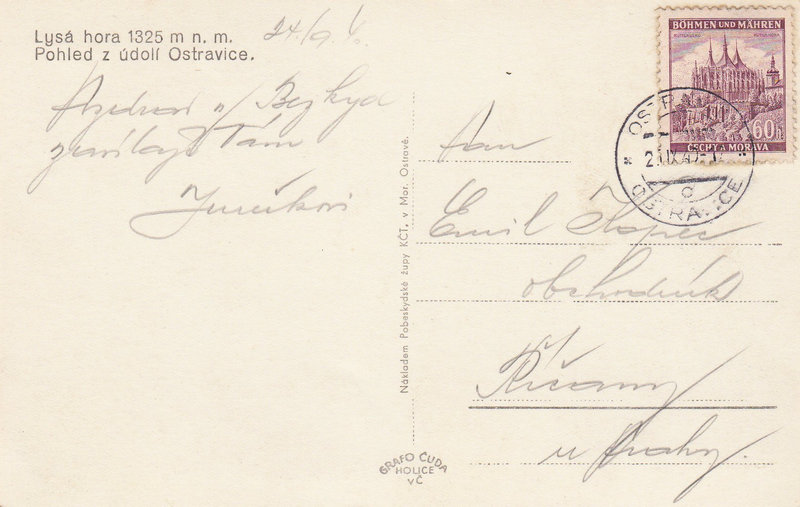 Lysá hora 1325 m n. m.
Pohled z údolí Ostravice.
24/9
Pozdrav z Bezkyd
zasílají Vám
Juříkovi
Nákladem Pobeskydské župy KČT. v Mor. Ostravě.
GRAFO ČUDA
HOLICE
VČ
BÖHMEN UND MÄHREN
60h
ČECHY A MORAVA
OSTRAVICE
OSTRAVICE
Pan
Emil Kopec
obchodník
Říčany
u Prahy.